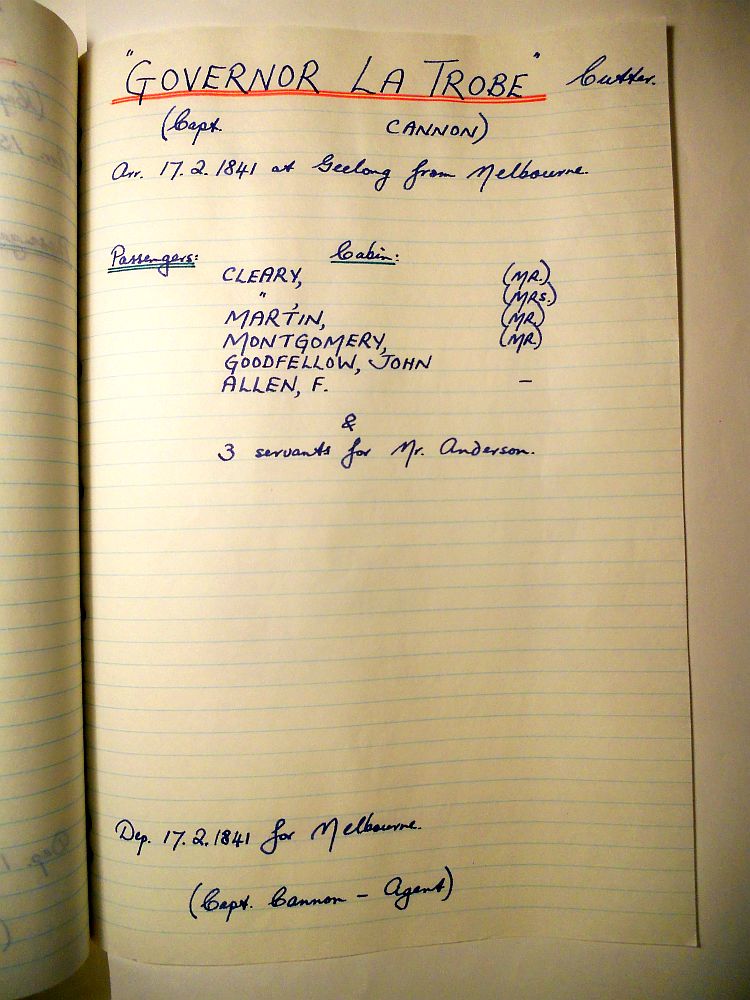 "GOVERNOR LA TROBE" Cutter.
(Capt. CANNON)
Arr. 17.2.1841 at Geelong from Melbourne.
Passengers: Cabin:
CLEARY, (MR.)
" , (MRS.)
MARTIN, (MR.)
MONTGOMERY, (MR.)
GOODFELLOW, JOHN
ALLEN, F. —
&
3 servants for Mr. Anderson.
Dep. 17.2.1841 for Melbourne.
(Capt. Cannon - Agent)